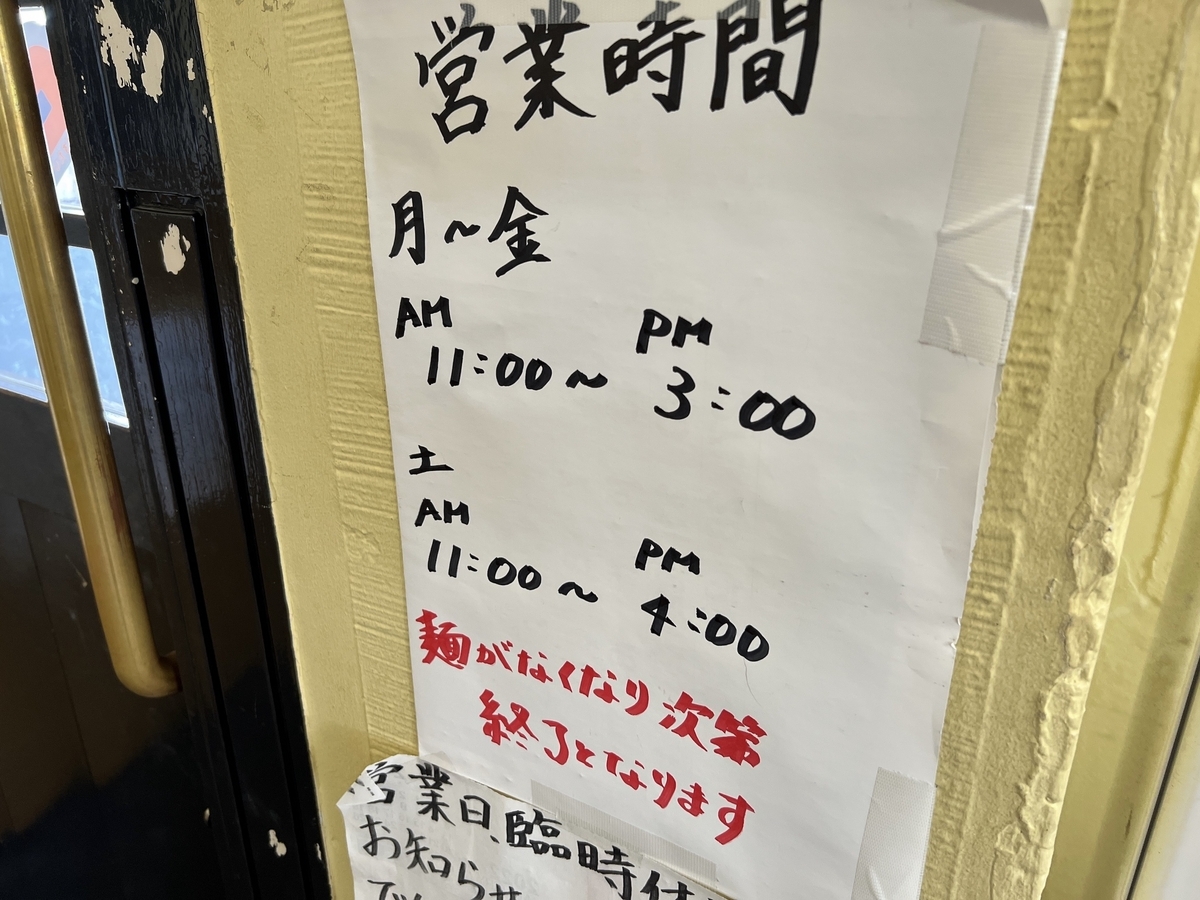 営業時間
月~金
AM 11:00~ PM 3:00
土
AM 11:00~ PM 4:00
麺がなくなり次第
終了となります
営業日、臨時休
お知らせ